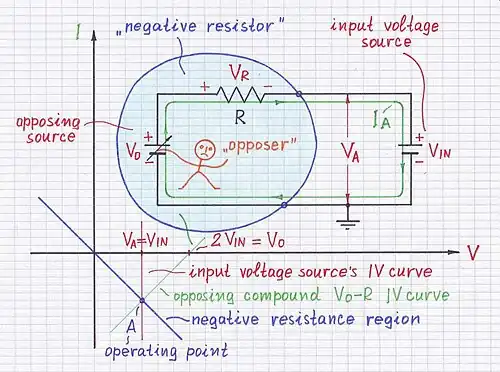 I
„negative resistor"
input voltage
source
VR
+ −
R
opposing
source
+
V0
−
„opposer"
IA
VA
+
VIN
−
VA=VIN
2VIN = V0
V
input voltage source's IV curve
opposing compound V0-R IV curve
A
negative resistance region
operating point